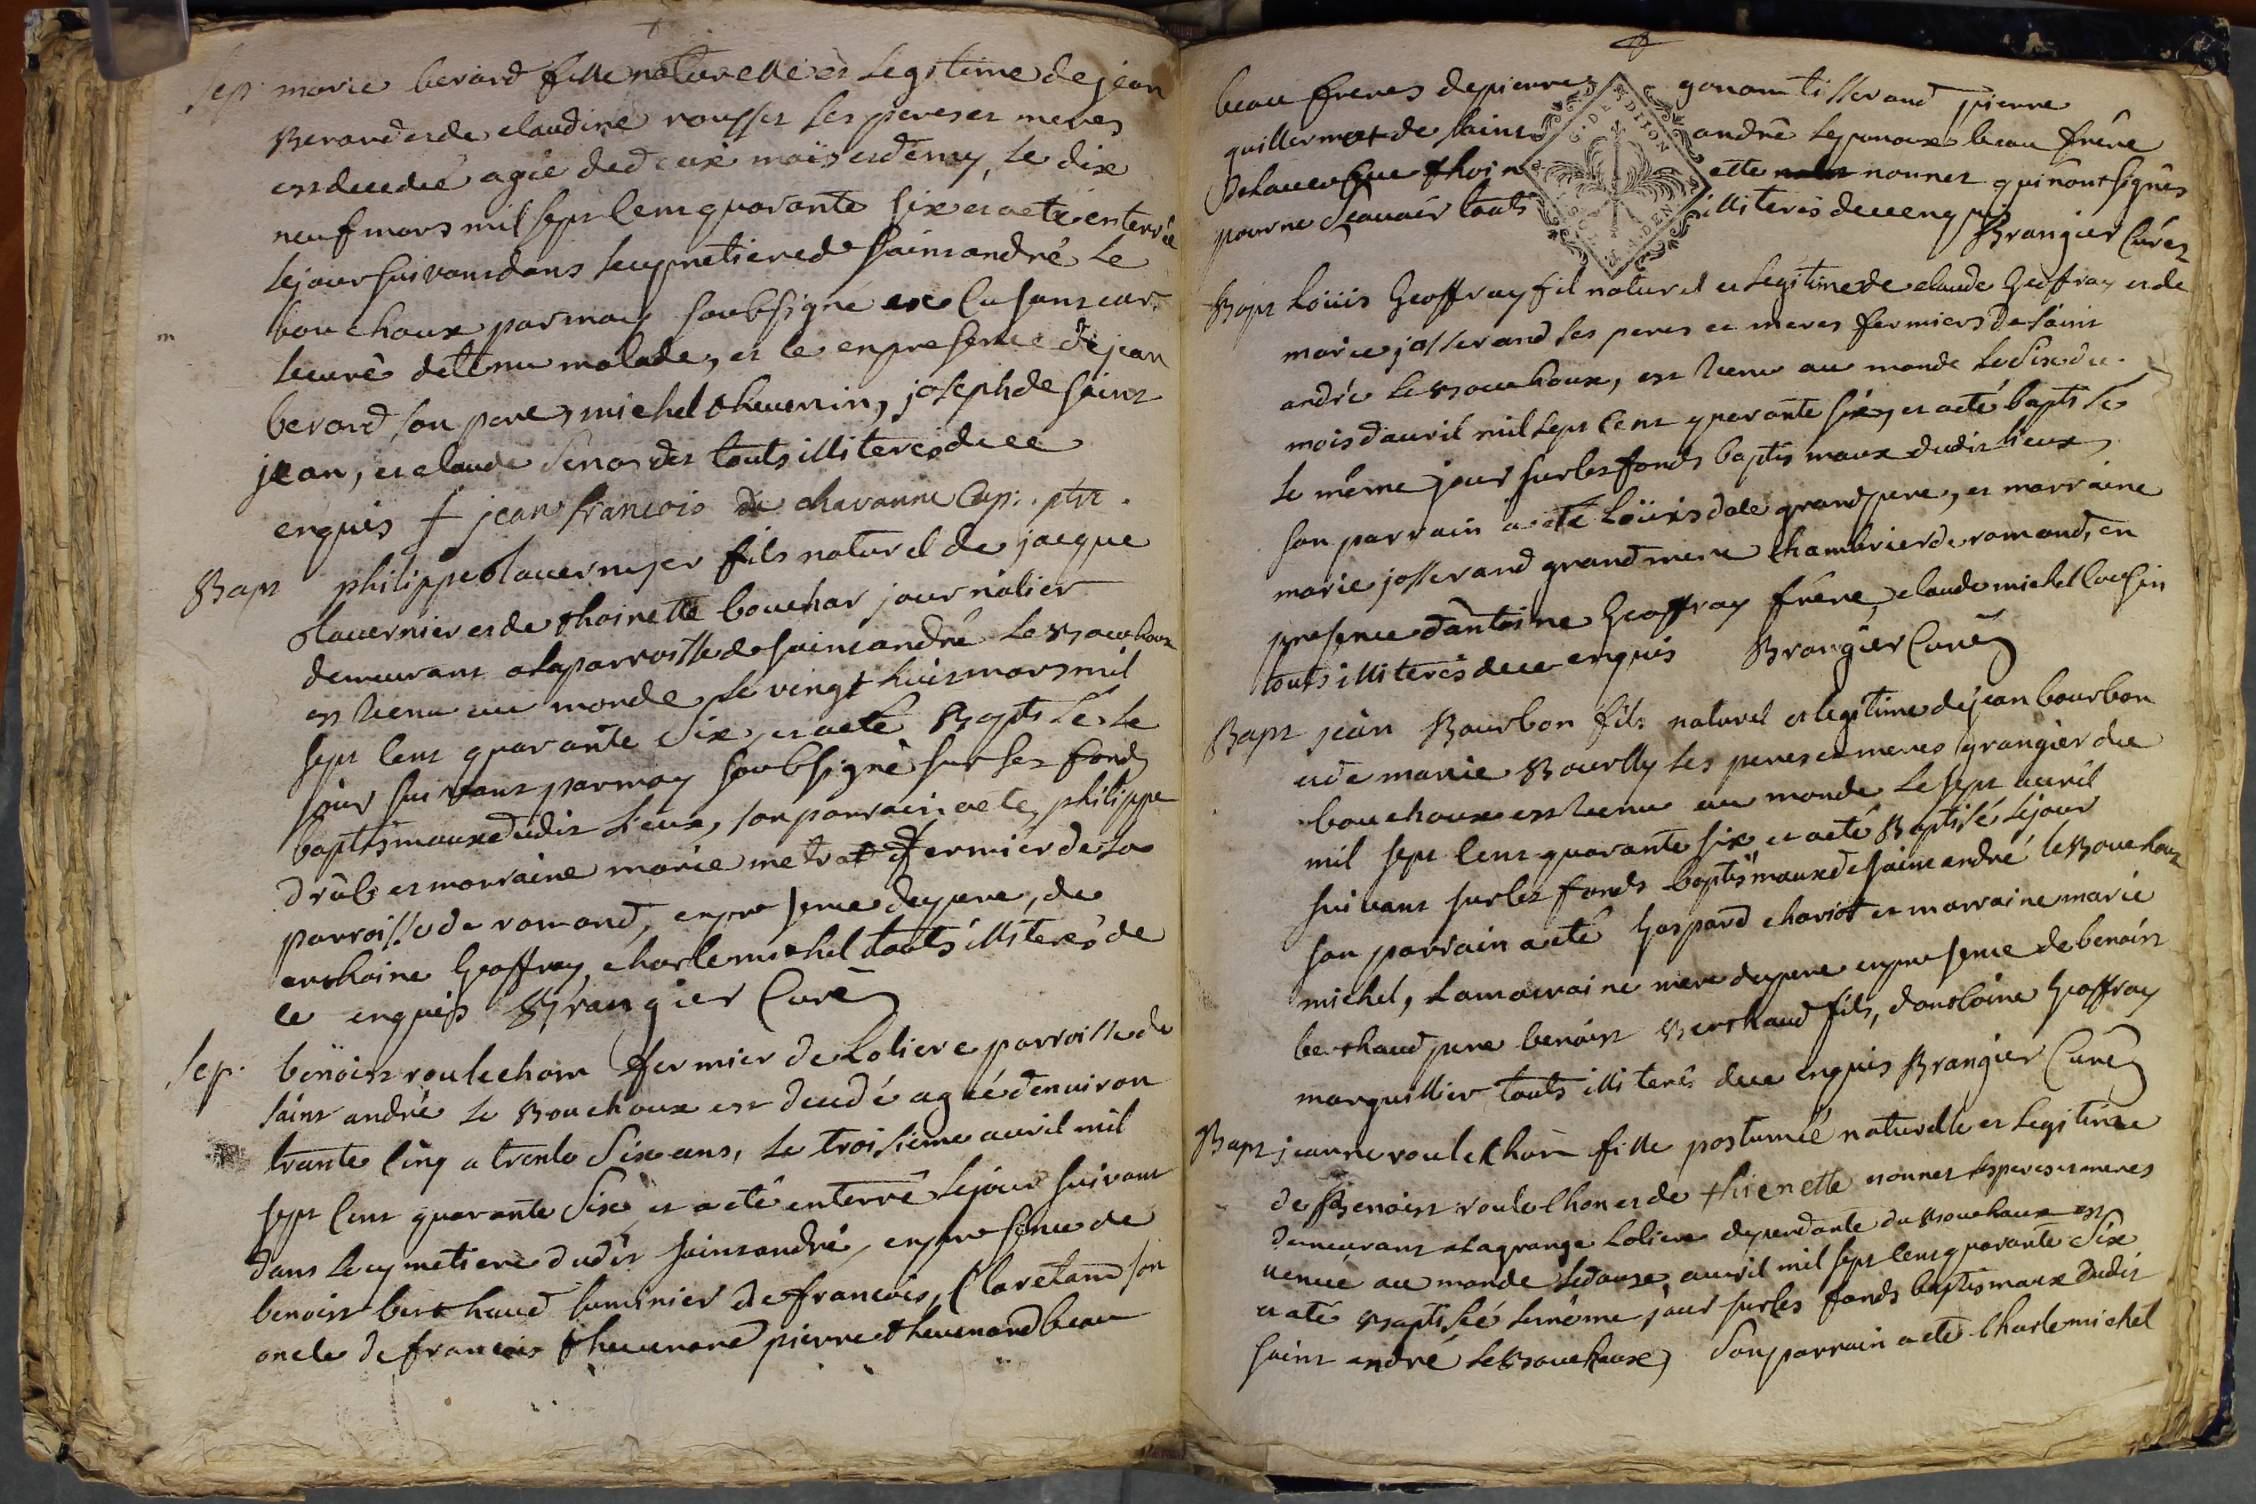 Sep. marie berard fille naturelle et Legitime de jean
Berard et de claudine rousset ses peres et meres
est decedeé ageé de deux mois et demy, Le dix
neuf mars mil sept Cent quarante six et a eté enterrée
le jour suivant dans le cymetiere de saint andré Le
bouchoux par moy soubsigné
Le curé détenu malade, et ce en presence de jean
berard son pere, michel theuvenin, joseph de saint
jean, et claude touts illiterés de ce
enquis jean françois de chavanne Cap. ptr.
Bapt philippe tavernyer fils naturel de jacque
tavernier et de thoinette bouchar journalier
demeurant a la parroisse de saint andré Le Bouchoux
est venu au monde Le vingt huit mars mil
sept Cent quarante six, et a eté Baptisé Le
jour suivant par moy soubsigné sur les fonds
baptismaux dudit Lieux, son parrain a eté philippe
drûle et marraine marie metrat fermier de La
parroisse de romand, en presence du pere, de
anthoine Geoffray, charle michel touts illiterés de
ce enquis Brangier Curé
Sep. benoist roulechom fermier de Loliere parroisse de
saint andré Le Bouchoux est decedé agé d'environ
trante cinq a trente Six ans, Le troisieme avril mil
sept Cent quarante Six, et a eté enterré Le jour suivant
dans Le cymetiere dudit saint andré, en presence de
benoist berthaud Luminier de françois Claretand son
oncle de françois theuvenard pierre theuvenard beau
beau freres de pierre gonom tisserand pierre
guillermet de saint andré Le panoux beau frére
thoinette nonnet qui n'ont signés
pour ne sçavoir touts illiterés de ce enquis
Brangier Curéz
Bapt Loüis Geoffray fil naturel et Legitime de claude Geoffray et de
marie josserand ses peres et meres fermiers de saint
andrée Le Bouchoux, est venu au monde Le Six du
mois d'avril mil sept Cent quarante Six, et a eté baptisé
Le même jour sur les fonds baptismaux dudit lieux,
son parrain a eté Loüis dale grand pere, et marraine
marie josserand grand mere Chambrier de romand, en
presence d'antoine Geoffray frére, claude michel Cousin
touts illiterés de ce enquis Brangier Curé
Bapt jean Bourbon fils naturel et legitime de jean bourbon
et de marie Bourlly ses peres et meres grangier du
bouchoux est venu au monde Le sept avril
mil sept Cent quarante six et a eté Baptisé Le jour
suivant sur les fonds baptismaux de saint andré le Bouchoux
son parrain a eté Gaspard chariot et marraine marie
michel, La marraine mere du pere en presence de benoist
berthaud pere benoist Berthaud fils, d'anthoine Geoffray
marguillier touts illiterés de ce enquis Brangier Curé
Bapt jeanne roulethom fille postumeé naturelle et Legitime
de Benoist roulethon et de thienette nonnet ses peres et meres
demeurant a La grange Loliere dependante du Bouchoux est
venüe au monde Le douze avril mil sept Cent quarante Six
et a eté Baptiseé Le méme jour sur les fonds baptismaux dudit
saint andré Le Bouchoux, Son parrain a eté Charle michel